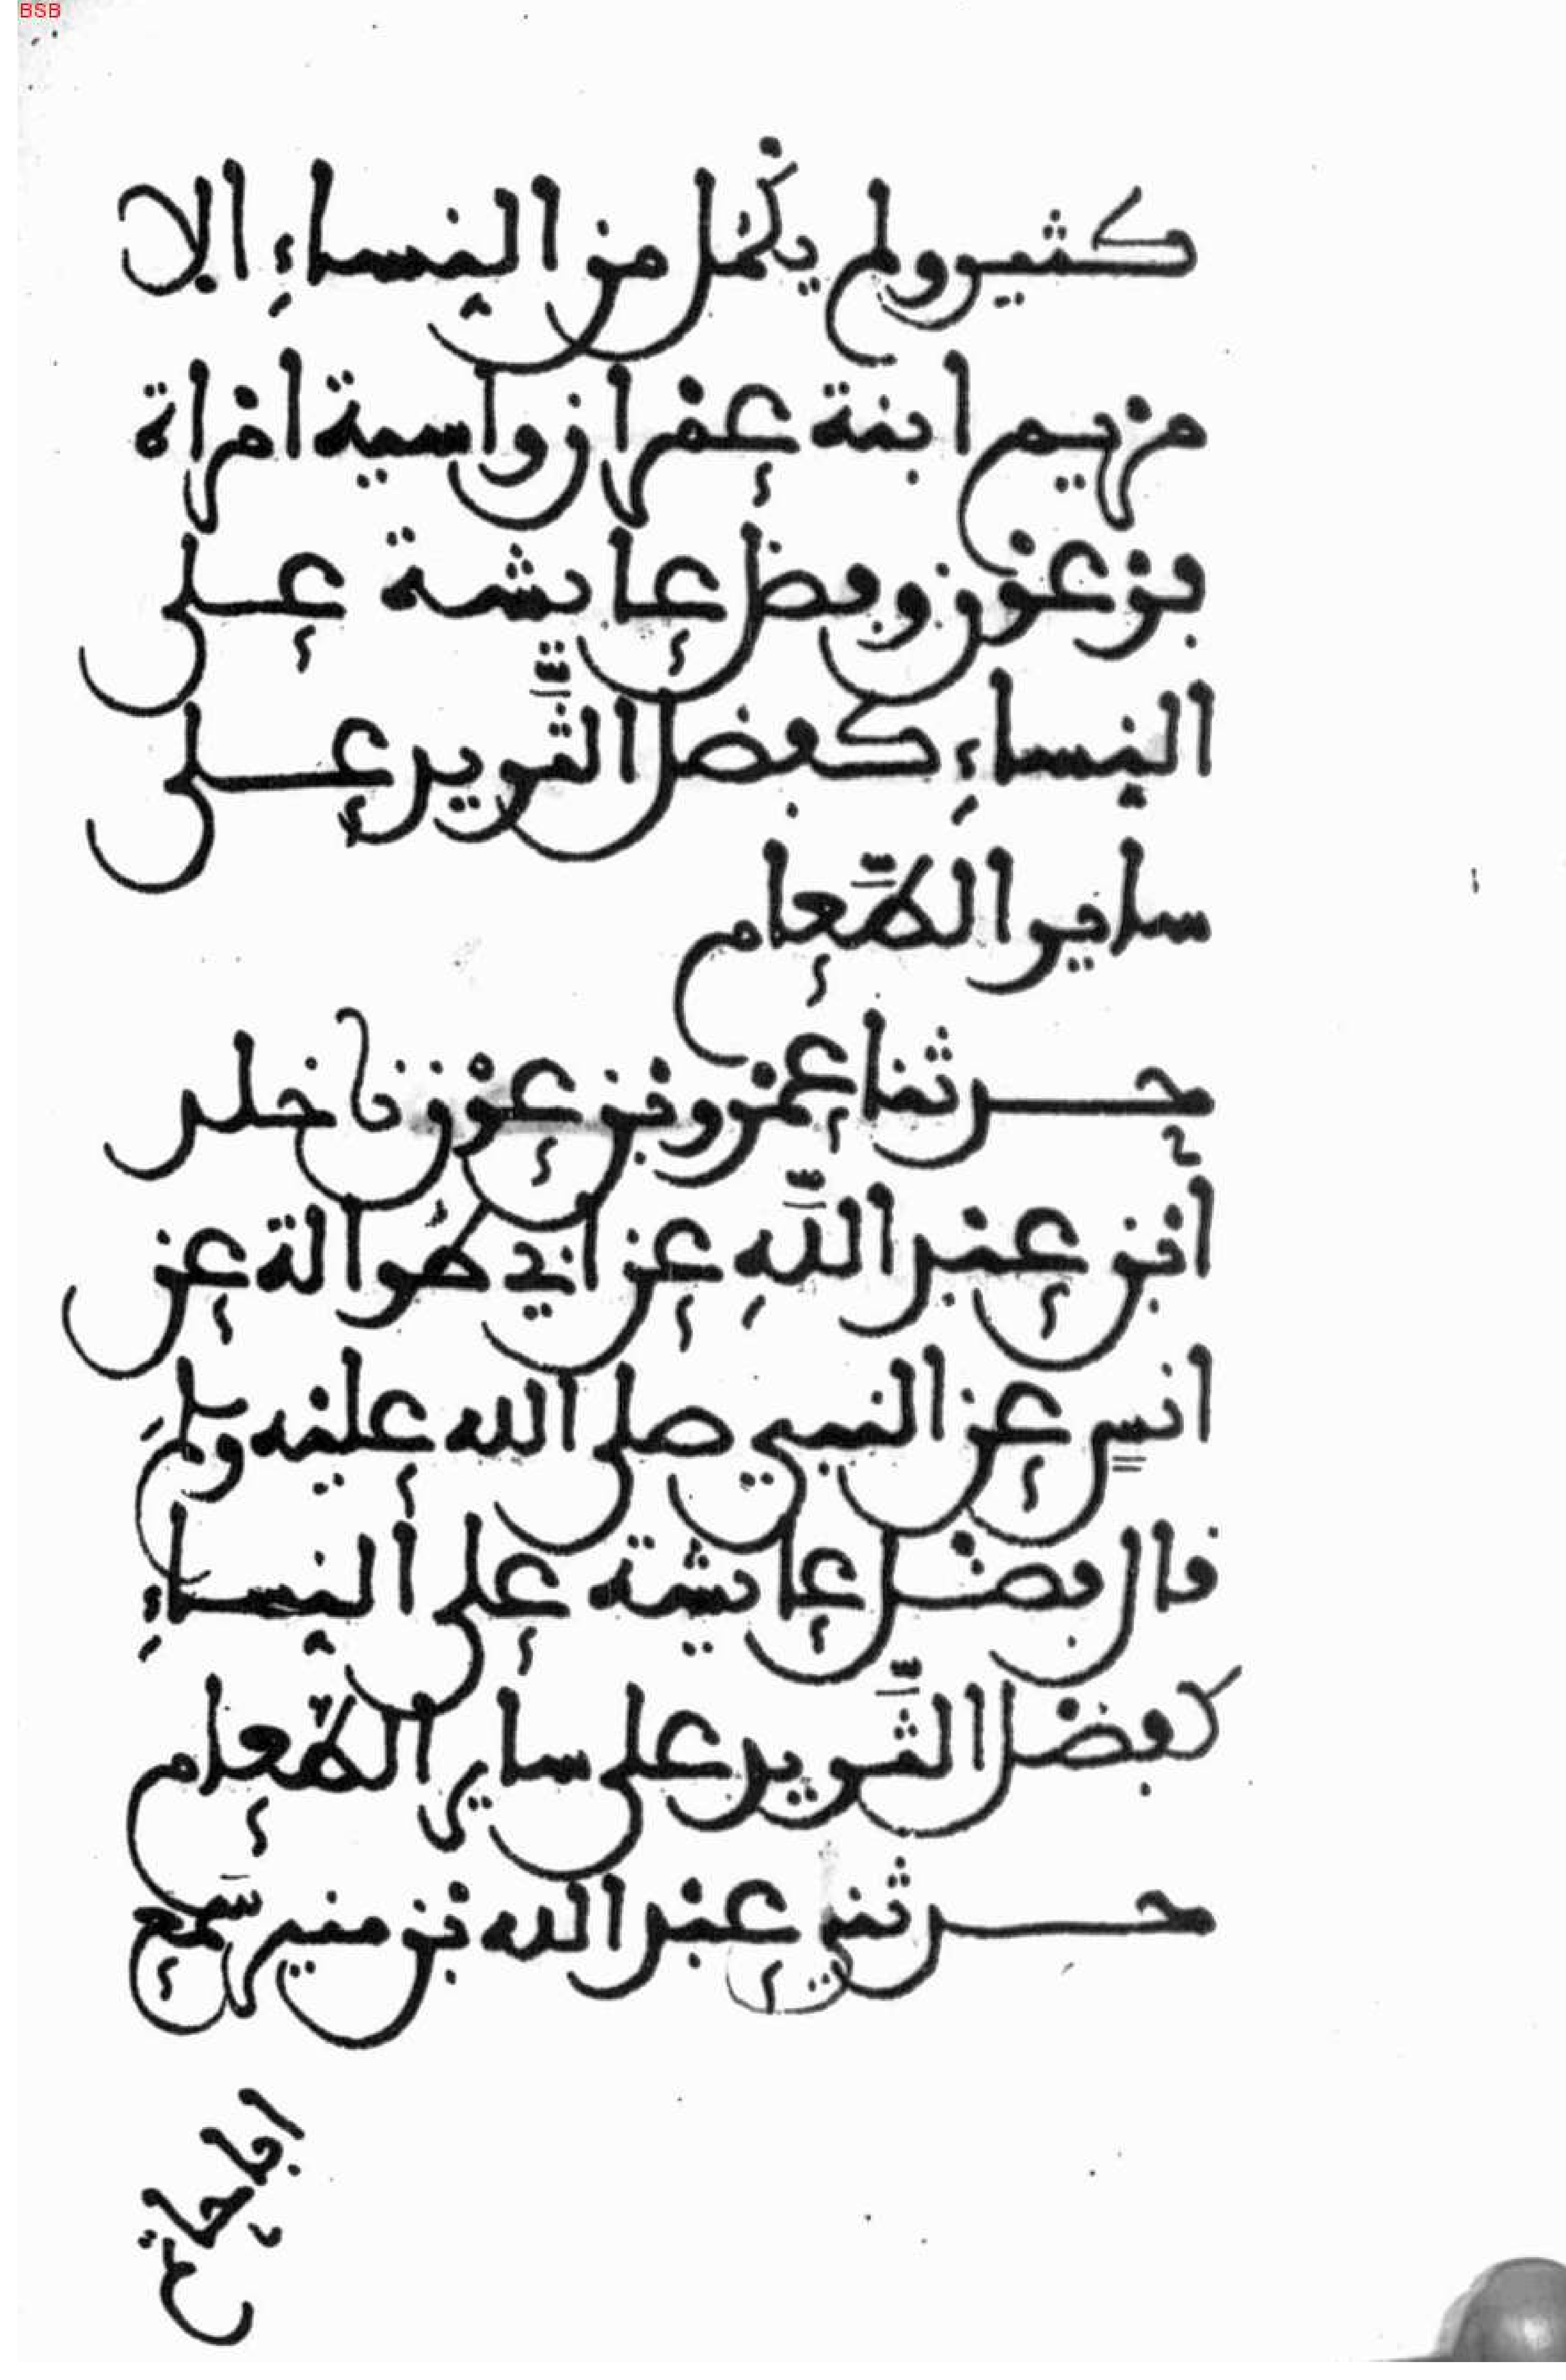 BSB
كثير ولم يكمل من النساءِ الا
مريم ابنة عمران واسية امراة
فرعون وفضل عايشة على
النساءِ كفضل الثَّريد على
ساير الطَّعام
حدثنا عمرو بن عون نا خلد
ابن عبد اللَّهِ عن ابي طُوالة عن
انس عن النبي صلى الله عليه وسلم
قال فضل عايشة على النساءِ
كفضل الثَّريد على ساير الطَّعام
حدثني عبد الله بن منير سَمع
ابا حاتم